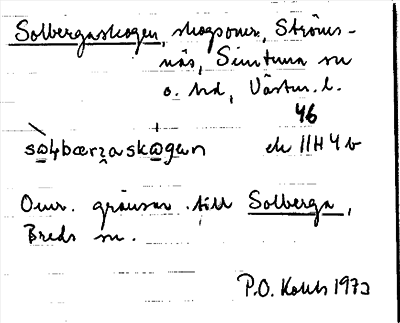 Solbergaskogen, skogsområ, Ströms-
näs, Simtuna sn
o. hd, Västm. l.
46
sɷɫbærzaskɷgɐn ek 11H 4 b
Områ. gränsar till Solberga,
Breds sn.
P.O. 1973